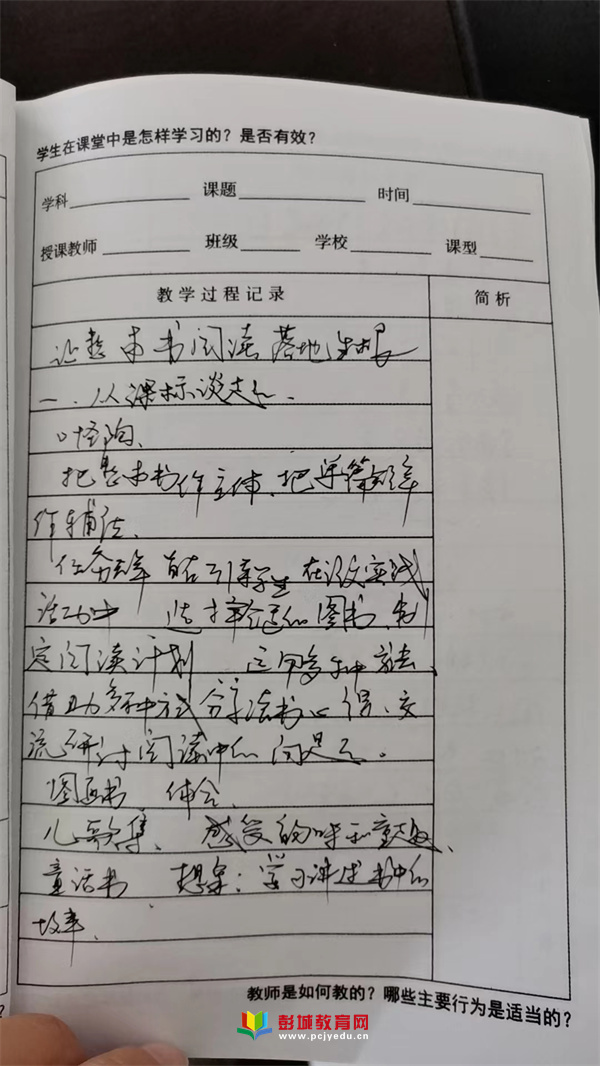 学生在课堂中是怎样学习的？是否有效？
学科 课题 时间
授课教师 班级 学校 课型
教学过程记录 简析
让整本书阅读落地生根
一、从课标谈起
把整本书作主体、把单篇
作辅法、
任务群旨在引导学生在语文实践
活动中 选择合适的图书、制
定阅读计划 运用多种方法、
借助多种方式分享读书心得、交
流研讨阅读中的问题
图画书 体会
儿歌集、感受 韵味和童趣、
童话书 想象：学习讲述书中的
故事、
教师是如何教的？哪些主要行为是适当的？
彭城教育网
www.pcjyedu.cn